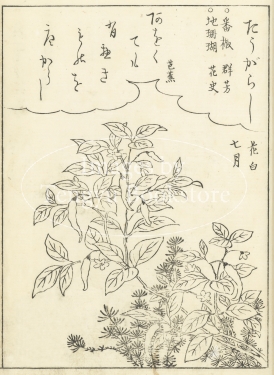 たうがらし
○番椒 群芳
○地珊瑚 花史
芭蕉
あをくても
有べき
ものを
唐がらし
花白
七月